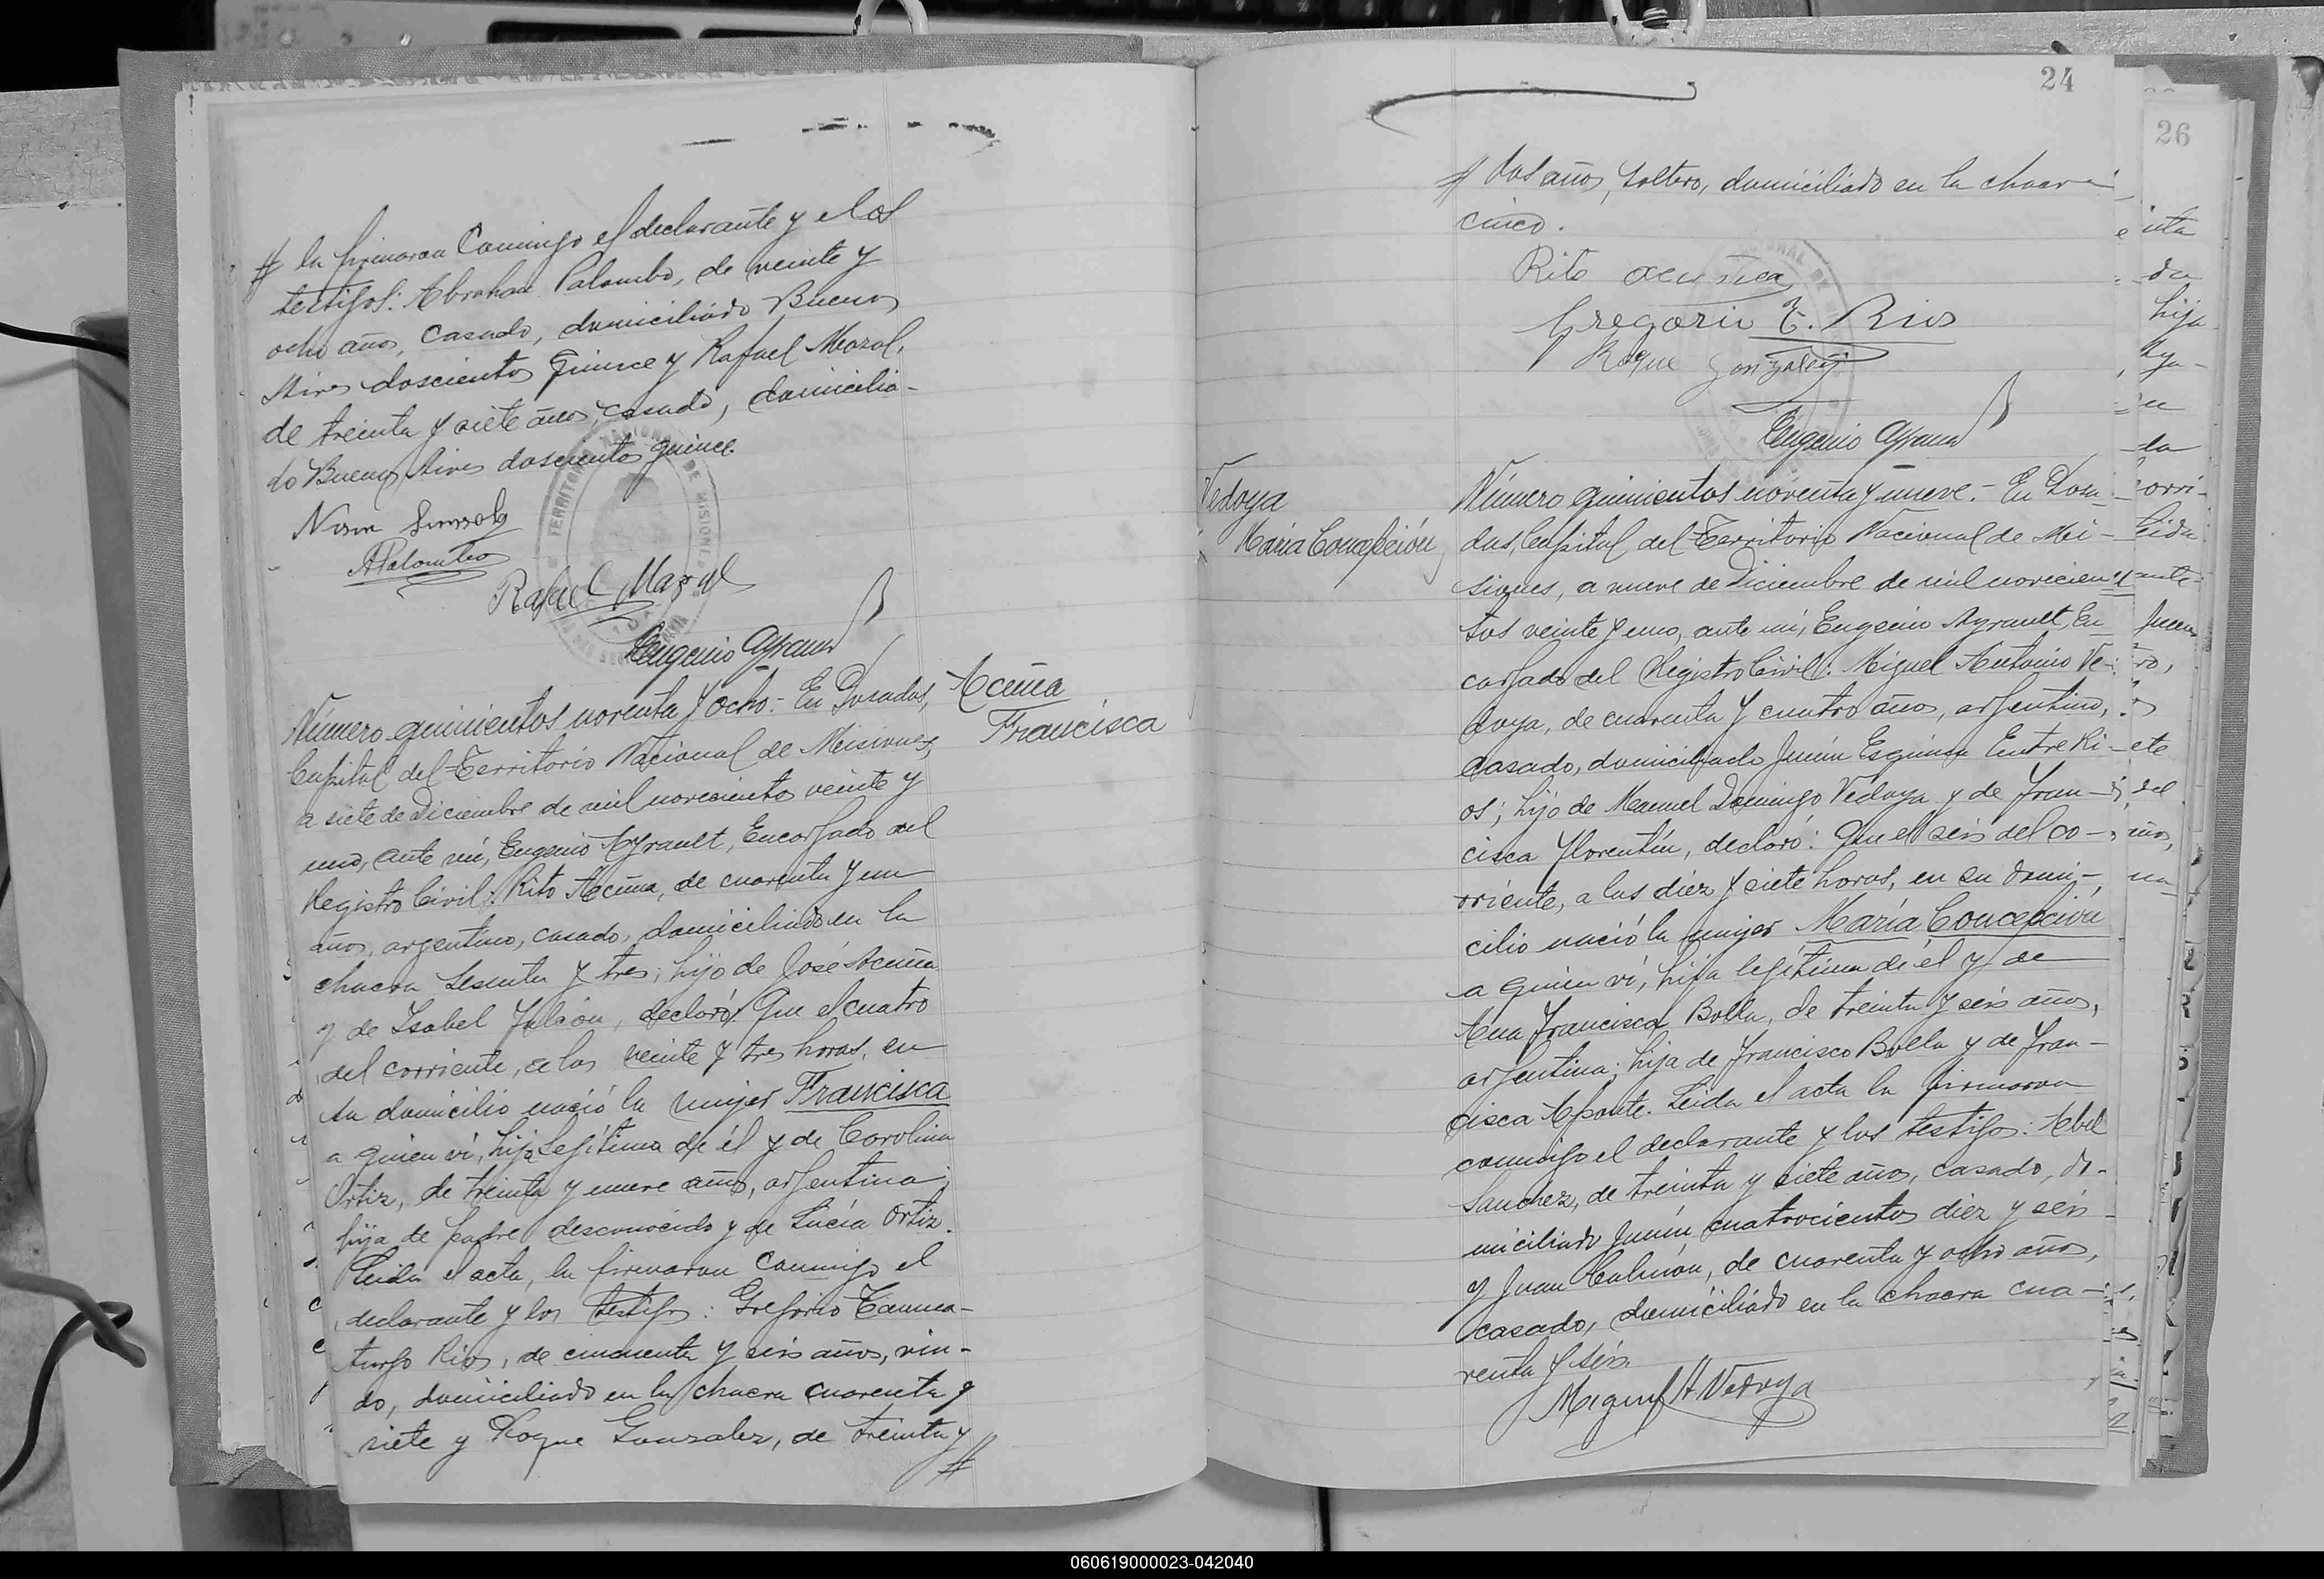 # la firmaron conmigo el declarante y los
testigos: Abraham Palombo, de veinte y
ocho años, casado, domiciliado Buenos
Aires doscientos quince y Rafael Mazal,
de treinta y siete años, casado, domicilia-
do Buenos Aires doscientos quince.
APalombo
Rafael Mazal
Eugenio Ayrault
Acuña
Francisca
Número quinientos noventa y ocho.- En Posadas,
Capital del Territorio Nacional de Misiones,
a siete de Diciembre de mil novecientos veinte y
uno, ante mí, Eugenio Ayrault, Encargado del
Registro Civil: Rito Acuña, de cuarenta y un
años, argentino, casado, domiciliado en la
chacra sesenta y tres; hijo de José Acuña
y de Isabel Falcón, declaró: Que el cuatro
del corriente, a las veinte y tres horas, en
su domicilio nació la mujer Francisca
a quien ví, hija legítima de él y de Carolina
Ortiz, de treinta y nueve años, argentina;
hija de padre desconocido y de Lucía Ortiz.
Leida el acta, la firmaron conmigo el
declarante y los testigos: Gregorio Tauma-
turgo Rios, de cincuenta y seis años, viu-
do, domiciliado en la chacra cuarenta y
siete y Roque Gonzalez, de treinta y
#
24
# dos años, soltero, domiciliado en la chacra
cinco.
Rito acuña
Gregorio T. Rios
Roque Gonzalez
Eugenio Ayrault
Vedoya
María Concepción
Número quinientos noventa y nueve.- En Posa-
das, Capital del Territorio Nacional de Mi-
siones, a nueve de Diciembre de mil novecien-
tos veinte y uno, ante mí, Eugenio Ayrault, En-
cargado del Registro Civil: Miguel Antonio Ve-
doya, de cuarenta y cuatro años, argentino,
casado, domiciliado Junín Esquina Entre Ri-
os; hijo de Manuel Domingo Vedoya y de Fran-
cisca Florentín, declaró: Que el seis del co-
rriente, a las diez y siete horas, en su domi-
cilio nació la mujer María Concepción
a quien ví, hija legítima de él y de
Ana Francisca Bolla, de treinta y seis años,
argentina; hija de Francisco Bolla y de Fran-
cisca Aponte. Leida el acta la firmaron
conmigo el declarante y los testigos: Abel
Sanchez, de treinta y siete años, casado, do-
miciliado Junín cuatrocientos diez y seis
y Juan Culmón, de cuarenta y ocho años,
casado, domiciliado en la chacra cua-
renta y seis.
Miguel A Vedoya
26
060619000023-042040